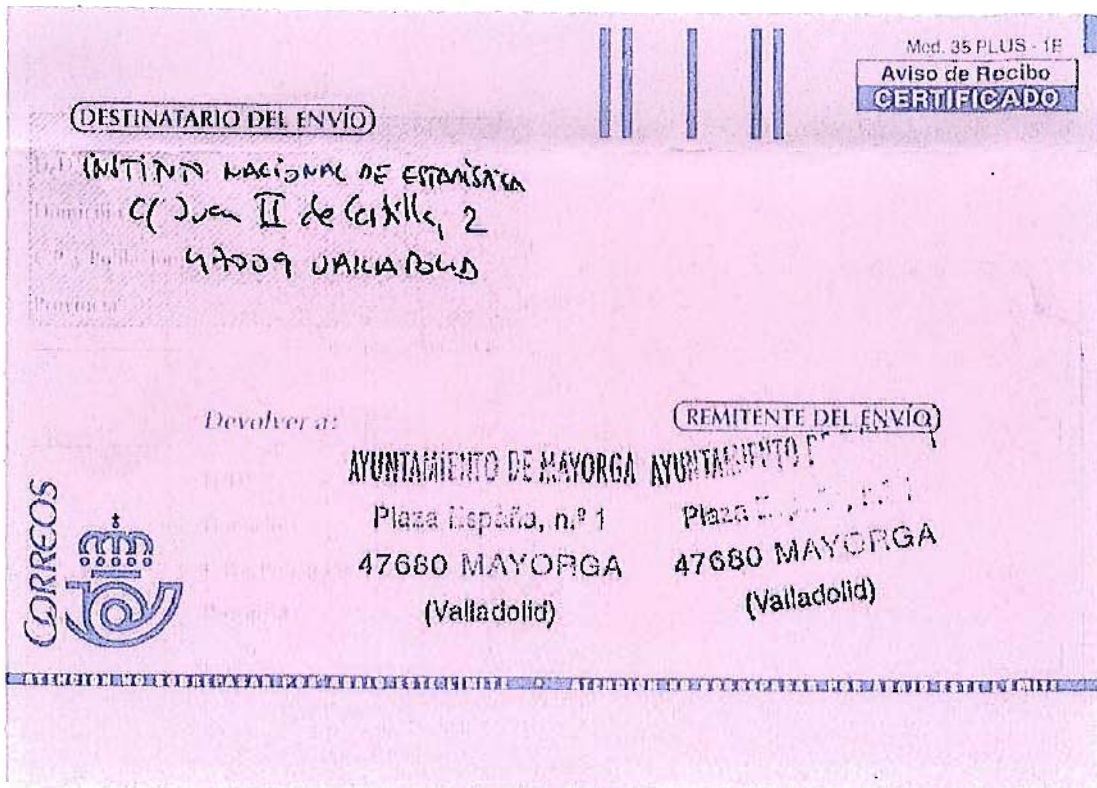 Mod. 35 PLUS - 1E
Aviso de Recibo
CERTIFICADO
DESTINATARIO DEL ENVÍO
INSTITUTO NACIONAL DE ESTADÍSTICA
C/ Juan II de Castilla, 2
47009 VALLADOLID
Domicilio
Provincia
Devolver a:
REMITENTE DEL ENVÍO
AYUNTAMIENTO DE MAYORGA
Plaza España, n.º 1
47680 MAYORGA
(Valladolid)
AYUNTAMIENTO DE
Plaza
47680 MAYORGA
(Valladolid)
CORREOS